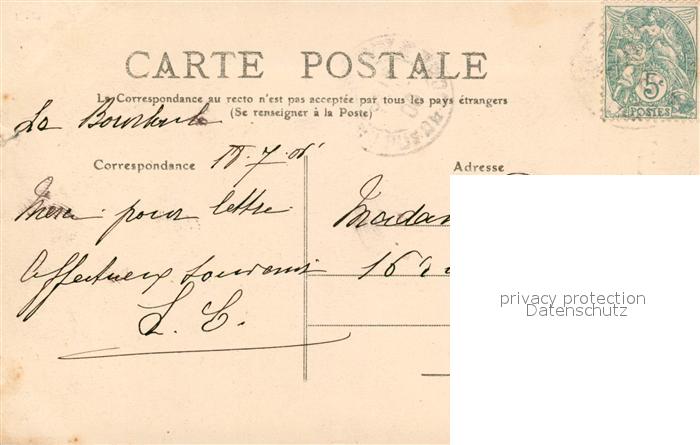 CARTE POSTALE
La Correspondance au recto n'est pas acceptée par tous les pays étrangers
(Se renseigner à la Poste)
La Bourboule
Correspondance
Adresse
Merci pour lettre
Affectueux souvenir
L. C.
Madam
16
5c
POSTES
privacy protection
Datenschutz